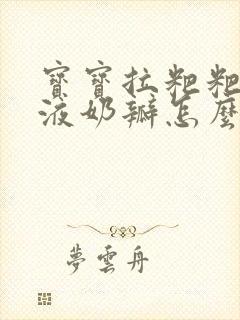 寶寶拉粑粑
液奶瓣怎麼
夢雲舟